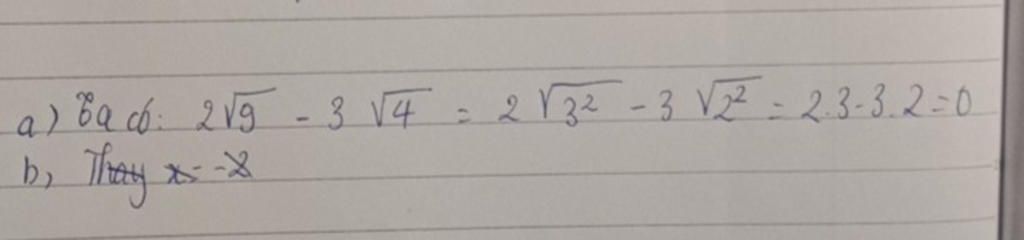 a) Ta có: 2√9 - 3 √4 = 2 √3² - 3 √2² = 2.3-3.2=0
b, Thay x = -2